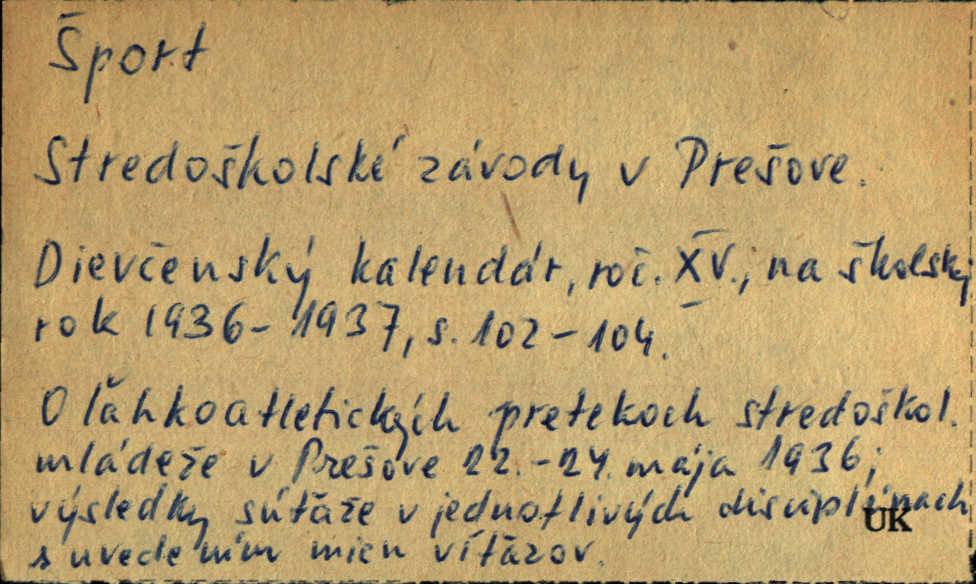 Šport
Stredoškolské závody v Prešove.
Dievčenský kalendár, roč. XV., na školský
rok 1936-1937, s. 102-104.
O ľahkoatletických pretekoch stredoškol.
mládeže v Prešove 22.-24. mája 1936;
výsledky súťaže v jednotlivých disciplínach
s uvedením mien víťazov.
UK